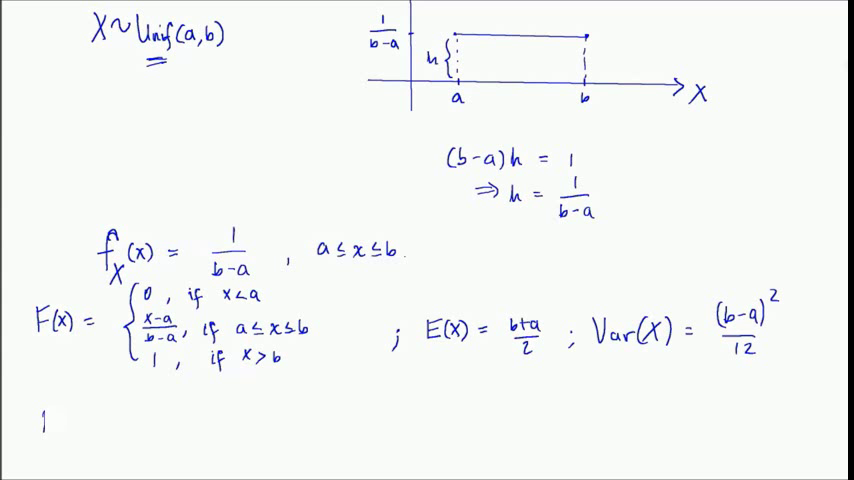 X~Unif(a,b)
1/(b-a)
h
a b X
(b-a)h = 1
⇒ h = 1/(b-a)
f_X(x) = 1/(b-a) , a ≤ x ≤ b.
F(x) = { 0 , if x<a
(x-a)/(b-a), if a ≤ x ≤ b ; E(X) = (b+a)/2 ; Var(X) = (b-a)²/12
1 , if x > b